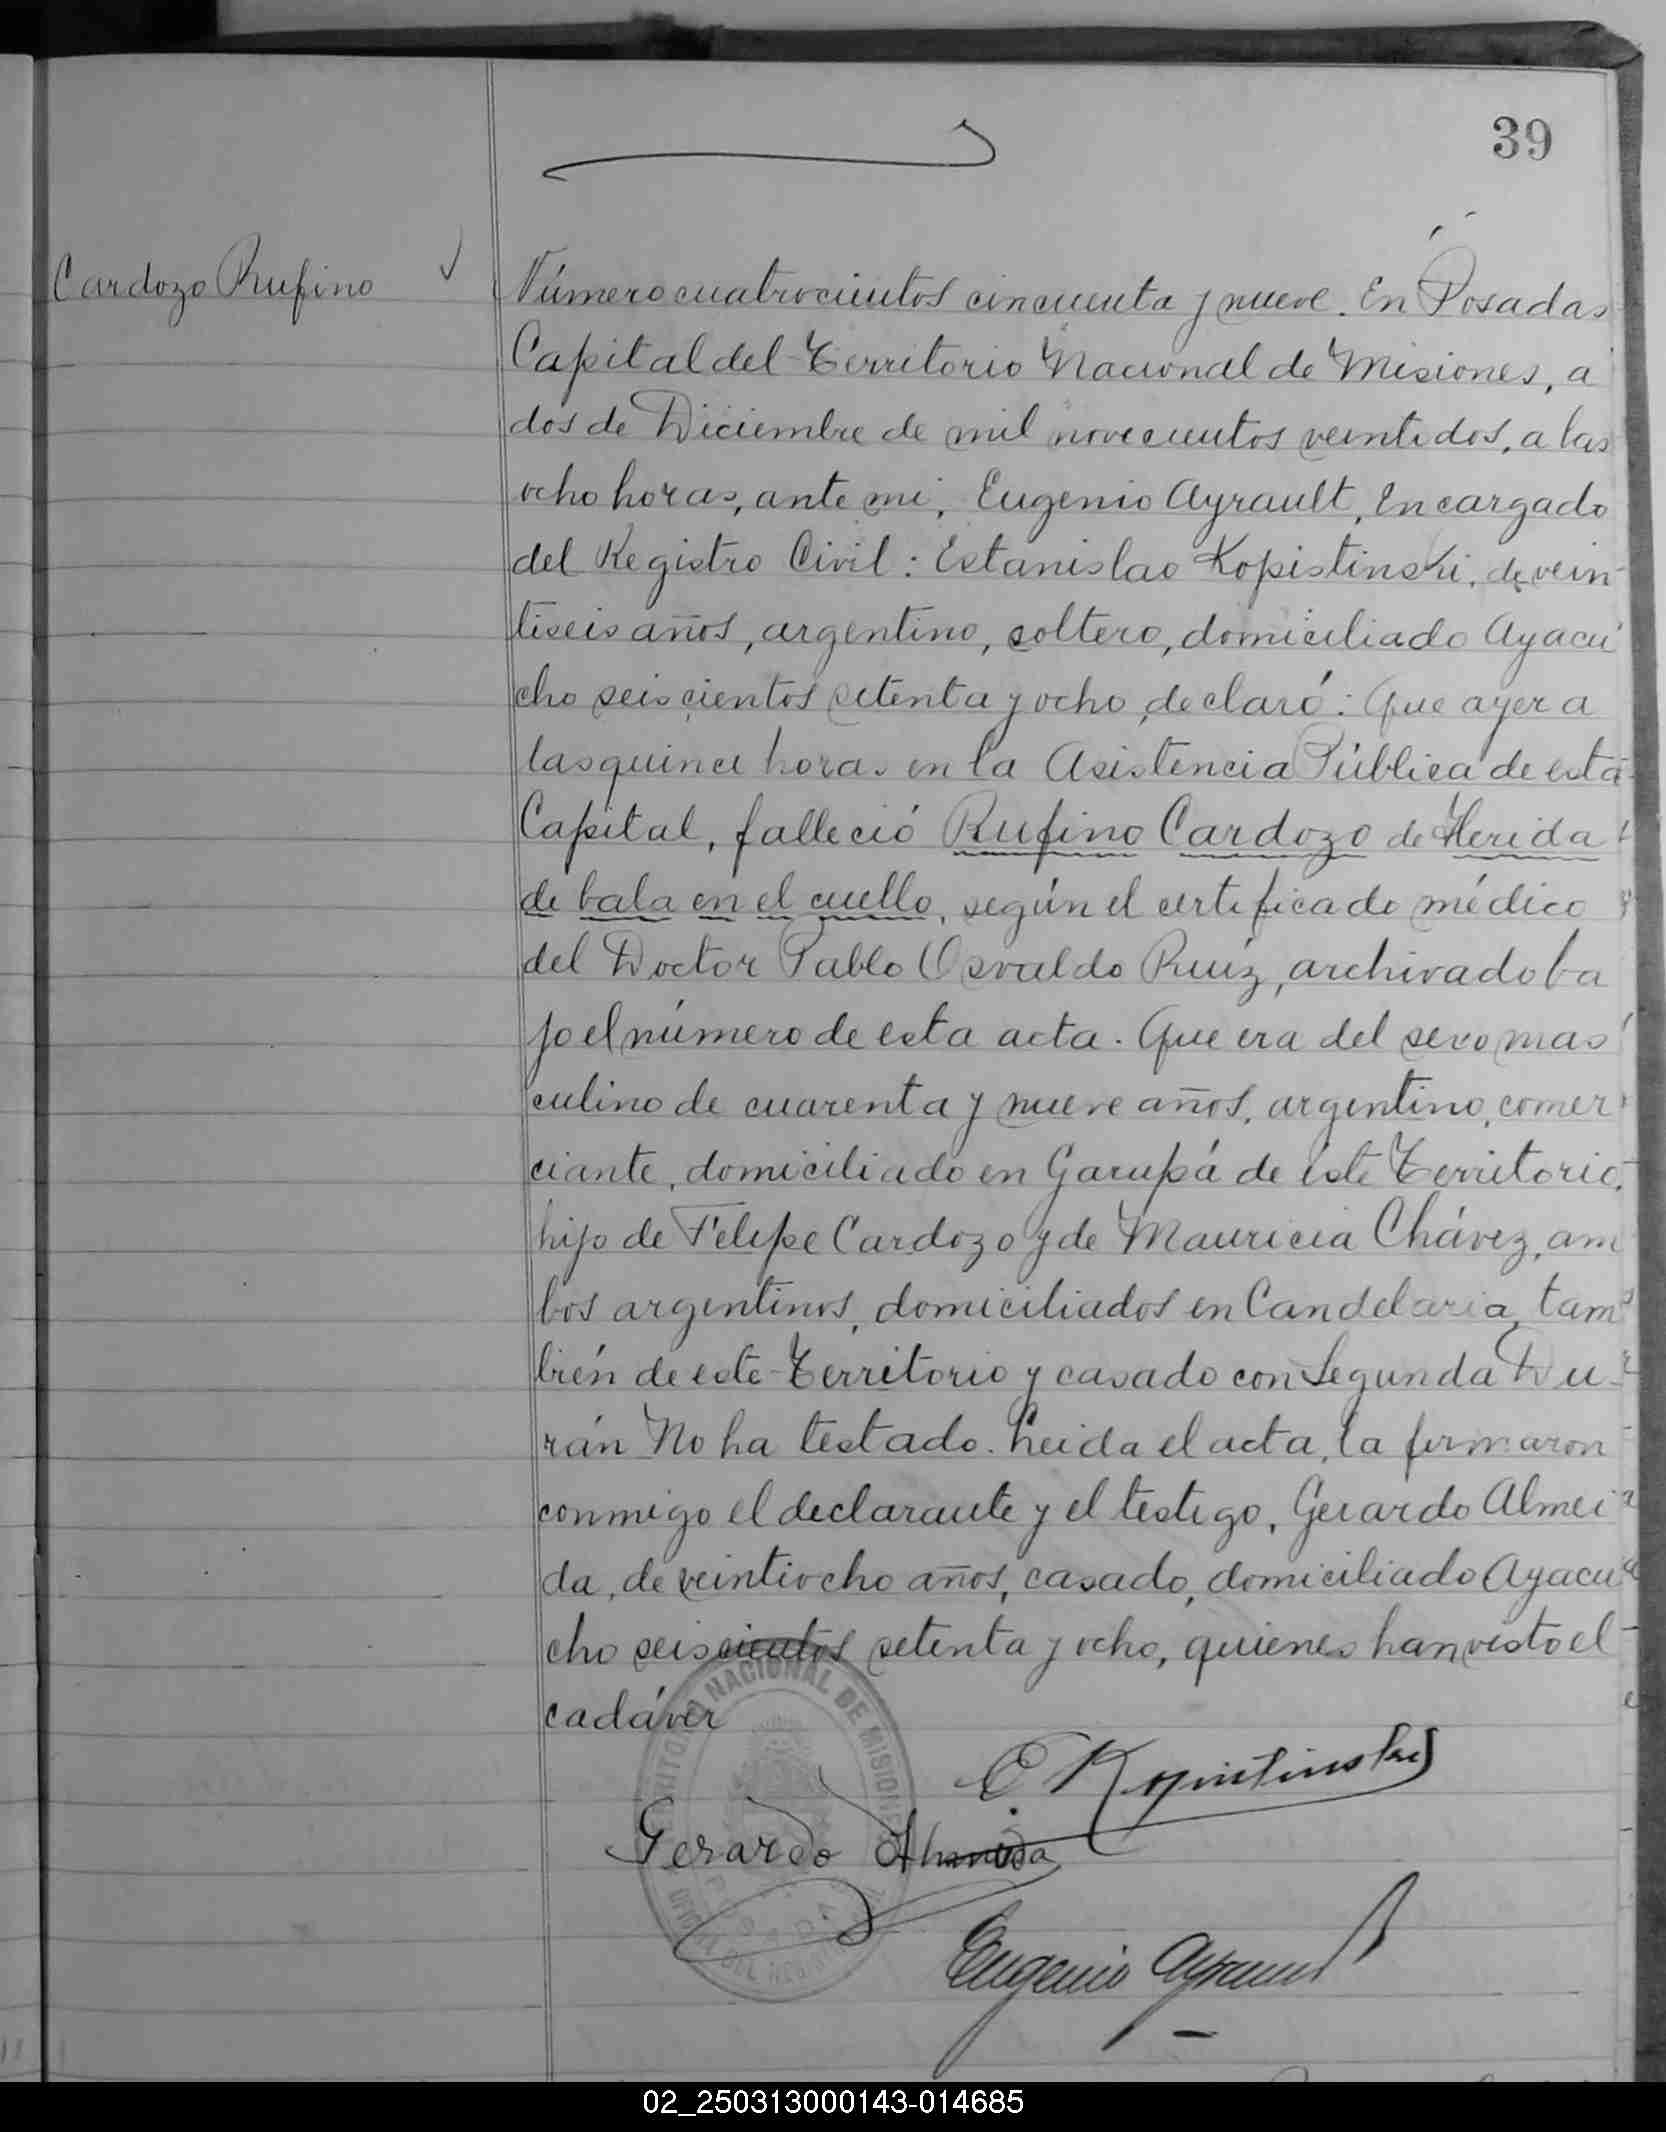 39
Cardozo Rufino
Número cuatrocientos cincuenta y nueve. En Posadas
Capital del Territorio Nacional de Misiones, a
dos de Diciembre de mil novecientos veintidos, a las
ocho horas, ante mi, Eugenio Ayrault, Encargado
del Registro Civil: Estanislao Kopistinski, de vein
tiseis años, argentino, soltero, domiciliado Ayacu
cho seiscientos setenta y ocho, declaró: Que ayer a
las quince horas en la Asistencia Pública de esta
Capital, falleció Rufino Cardozo de Herida
de bala en el cuello, según el certificado médico
del Doctor Pablo Osvaldo Ruíz, archivado ba
jo el número de esta acta. Que era del sexo mas
culino de cuarenta y nueve años, argentino, comer
ciante, domiciliado en Garupá de éste Territorio,
hijo de Felipe Cardozo y de Mauricia Chávez, am
bos argentinos, domiciliados en Candelaria, tam
bién de este Territorio y casado con Segunda Du
rán No ha testado. Leida el acta, la firmaron
conmigo el declarante y el testigo, Gerardo Almei
da, de veintiocho años, casado, domiciliado Ayacu
cho seiscientos setenta y ocho, quienes han visto el
cadáver
E Kopistinski
Gerardo Almeida
Eugenio Ayrault
TERRITORIO NACIONAL DE MISIONES
POSADAS
02_250313000143-014685